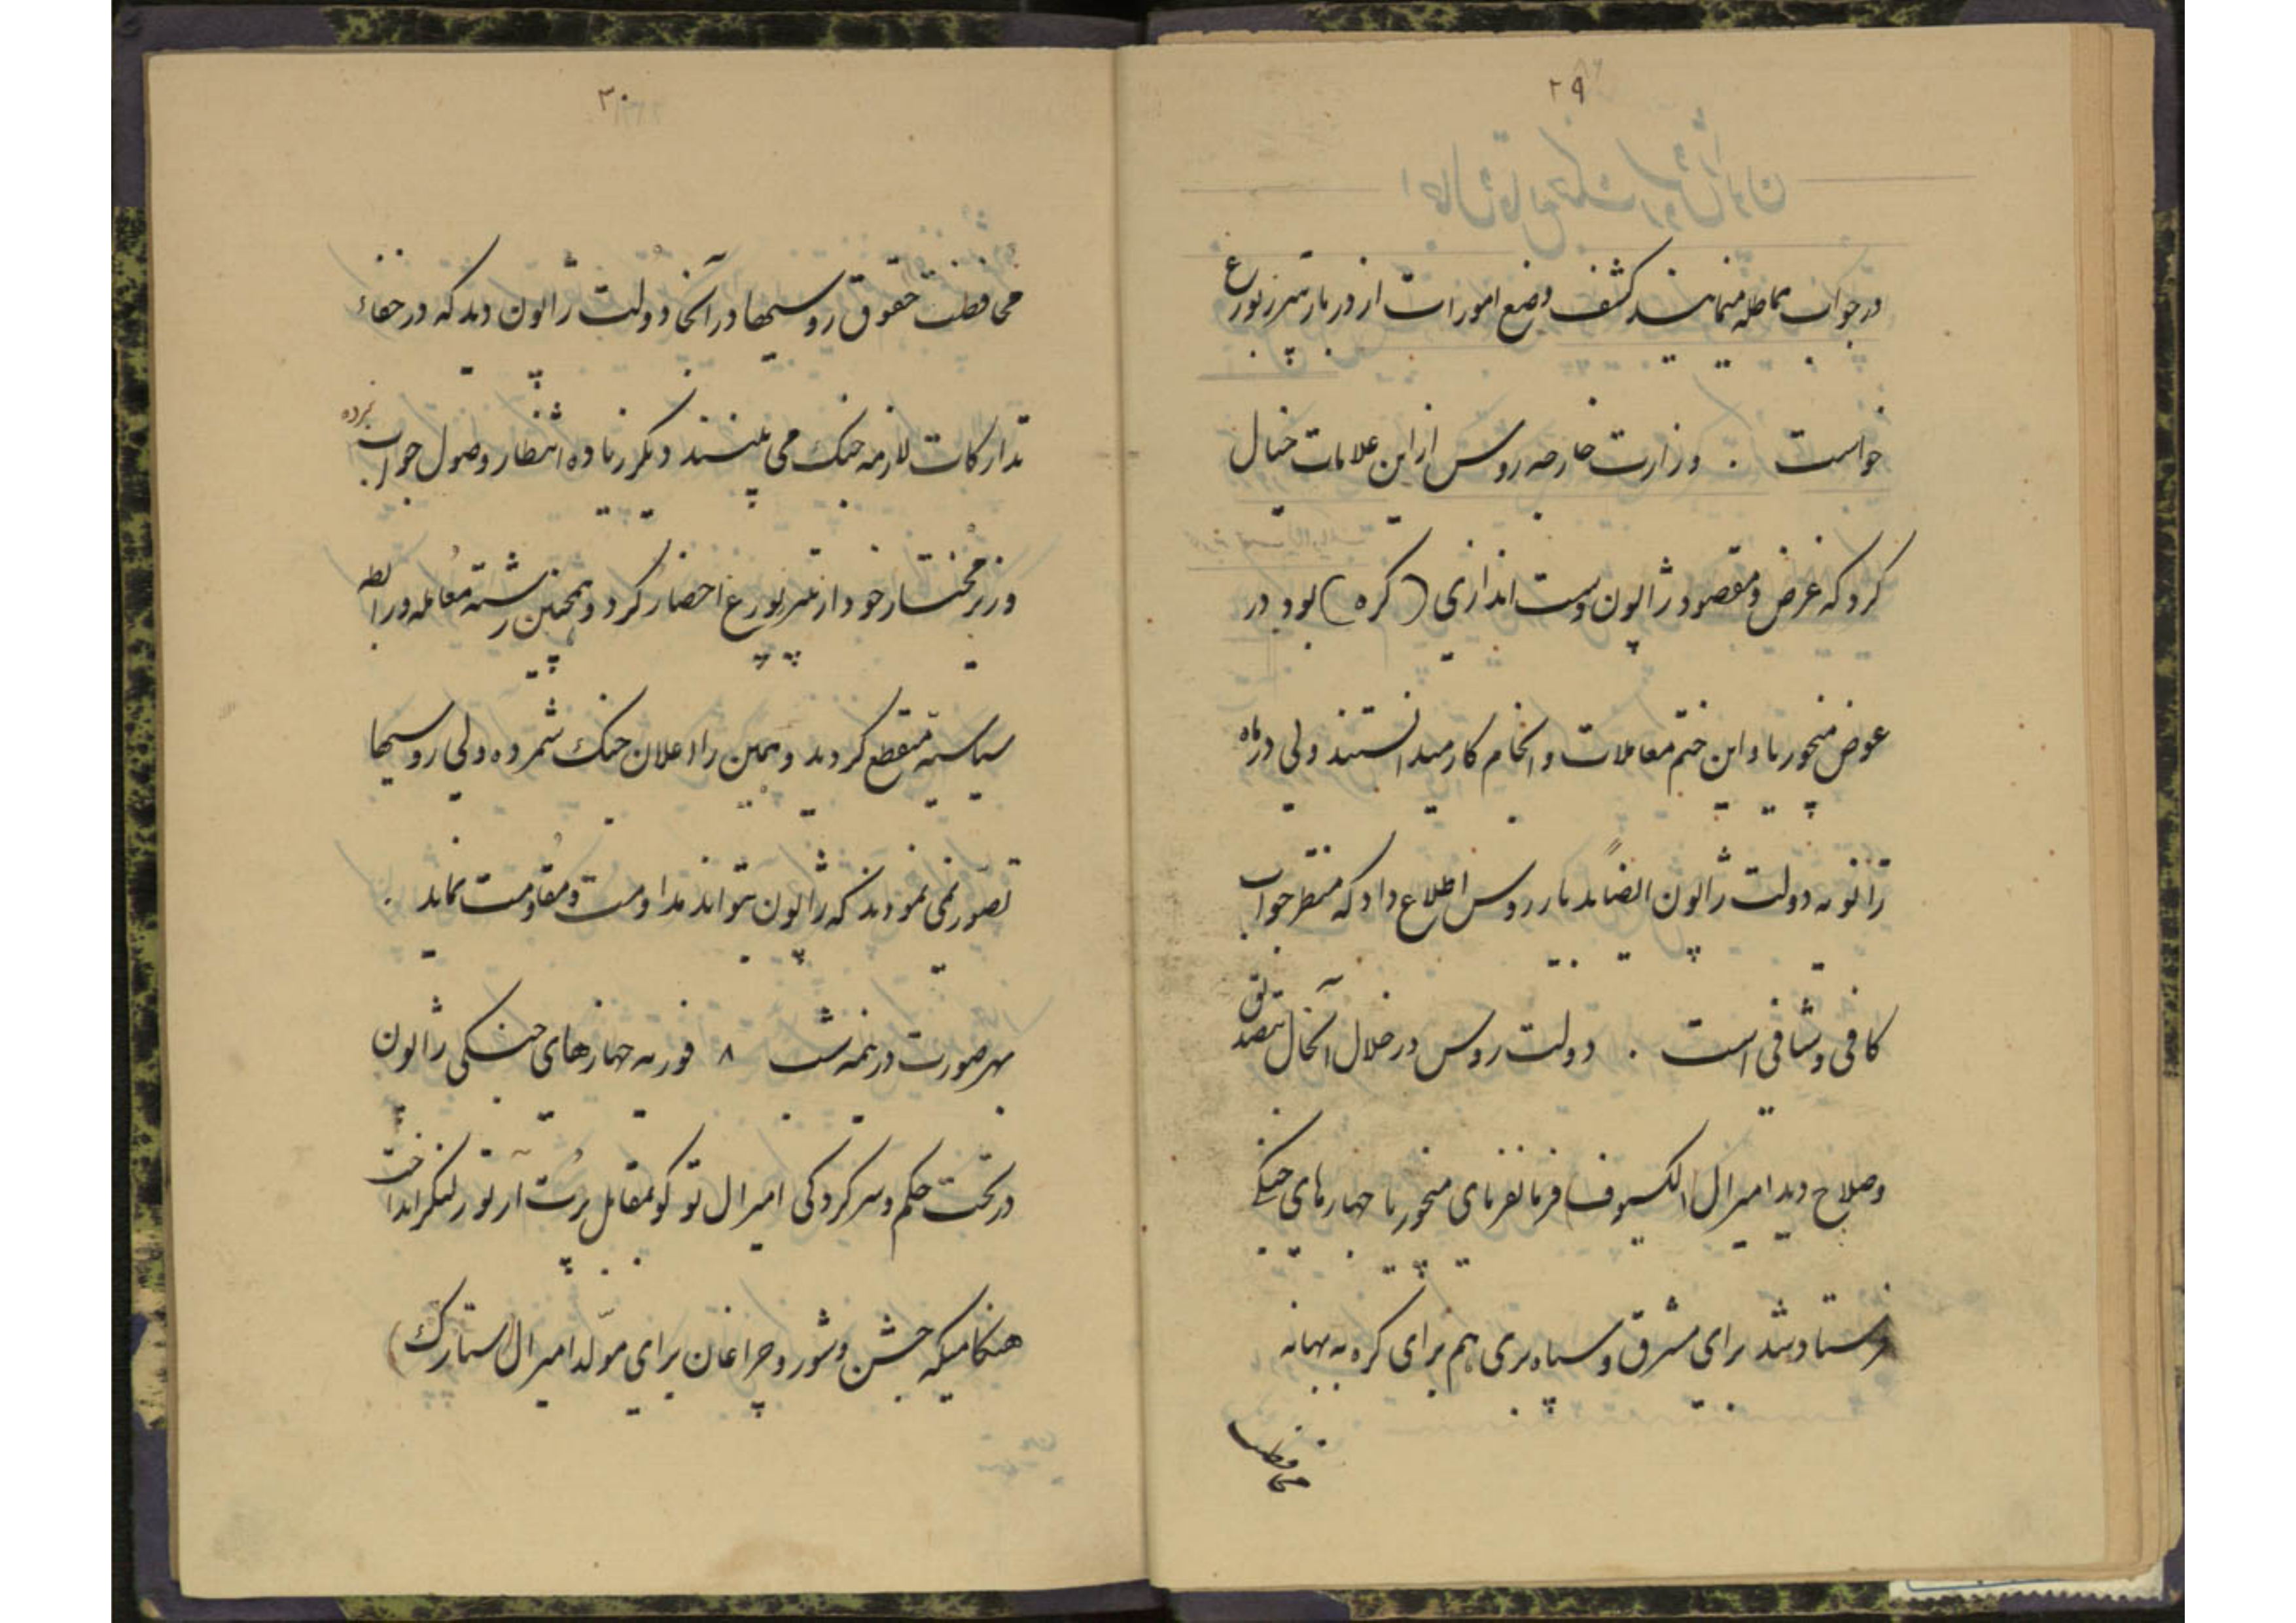 ۲۹
در جواب مماطله مینمایند کشف وضع امورات از دربار پترزبورغ
خواست . وزارت خارجه روس از این علامات خیال
کرد که غرض و مقصود ژاپون دست اندازی (کره) بود در
عوض منچوریا و این ختم معاملات و انجام کار میدانستند ولی در ماه
ژانویه دولت ژاپون ایضاً بدربار روس اطلاع داد که منتظر جواب
کافی و شافی است . دولت روس در خلال آنحال بتصدیق
و صلاح دید امیرال (الکسیوف) فرمانفرمای منچوریا جهازهای جنگی
فرستاد شد برای مشرق و سپاه بری هم برای کره به بهانه
محافظت
۳۰
محافظت حقوق روسیها در آنجا دولت ژاپون دید که در خفاء
تدارکات لازمه جنک می بینند دیگر زیاده انتظار وصول جواب نبرده
وزیر مختار خود از پترزبورغ احضار کرد و همچنین رشته معامله و رابطه
سیاسیه منقطع کردید و همین را اعلان جنک شمرده ولی روسیها
تصور نمی نمودند که ژاپون بتواند مداومت و مقاومت نماید .
بهر صورت در نیمه شب ۸ فوریه جهازهای جنگی ژاپون
در تحت حکم و سرکردکی امیرال توکو بمقابل پرت آرتور لنکر انداخت
هنکامیکه جشن و شور و چراغان برای مولد امیرال (ستارک)